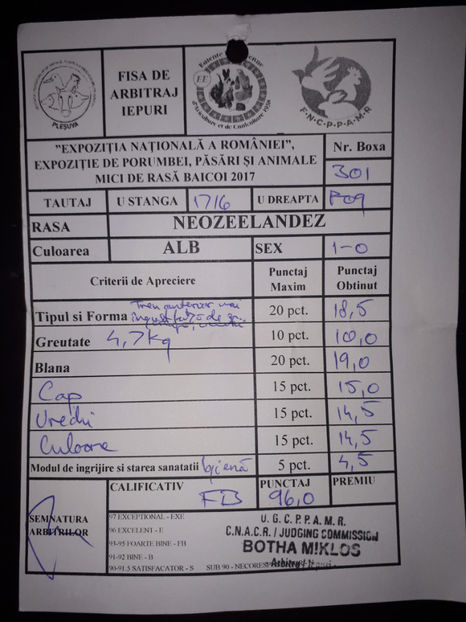 PLEȘUVA
FISA DE
ARBITRAJ
IEPURI
EE
d'Aviculture et de Cuniculture 1938
F·N·C·P·P·A·M·R
"EXPOZIȚIA NAȚIONALĂ A ROMÂNIEI",
EXPOZIȚIE DE PORUMBEI, PĂSĂRI ȘI ANIMALE
MICI DE RASĂ BAICOI 2017
Nr. Boxa
301
TATUAJ U STANGA 1716 U DREAPTA P09
RASA NEOZEELANDEZ
Culoarea ALB SEX 1-0
Criterii de Apreciere Punctaj Maxim Punctaj Obtinut
Tren anterior mai
Tipul si Forma 20 pct. 18,5
Greutate 4,7 kg 10 pct. 10,0
Blana 20 pct. 19,0
Cap 15 pct. 15,0
Urechi 15 pct. 14,5
Culoare 15 pct. 14,5
Modul de ingrijire si starea sanatatii igienă 5 pct. 4,5
CALIFICATIV FB PUNCTAJ 96,0 PREMIU
SEMNATURA
ARBITRILOR
97 EXCEPTIONAL - EXE
96 EXCELENT - E
93-95 FOARTE BINE - FB
91-92 BINE - B
90-91.5 SATISFACATOR - S SUB 90 -
U. G. C. P. P. A. M. R.
C.N.A.C.R. / JUDGING COMMISSION
BOTHA MIKLOS